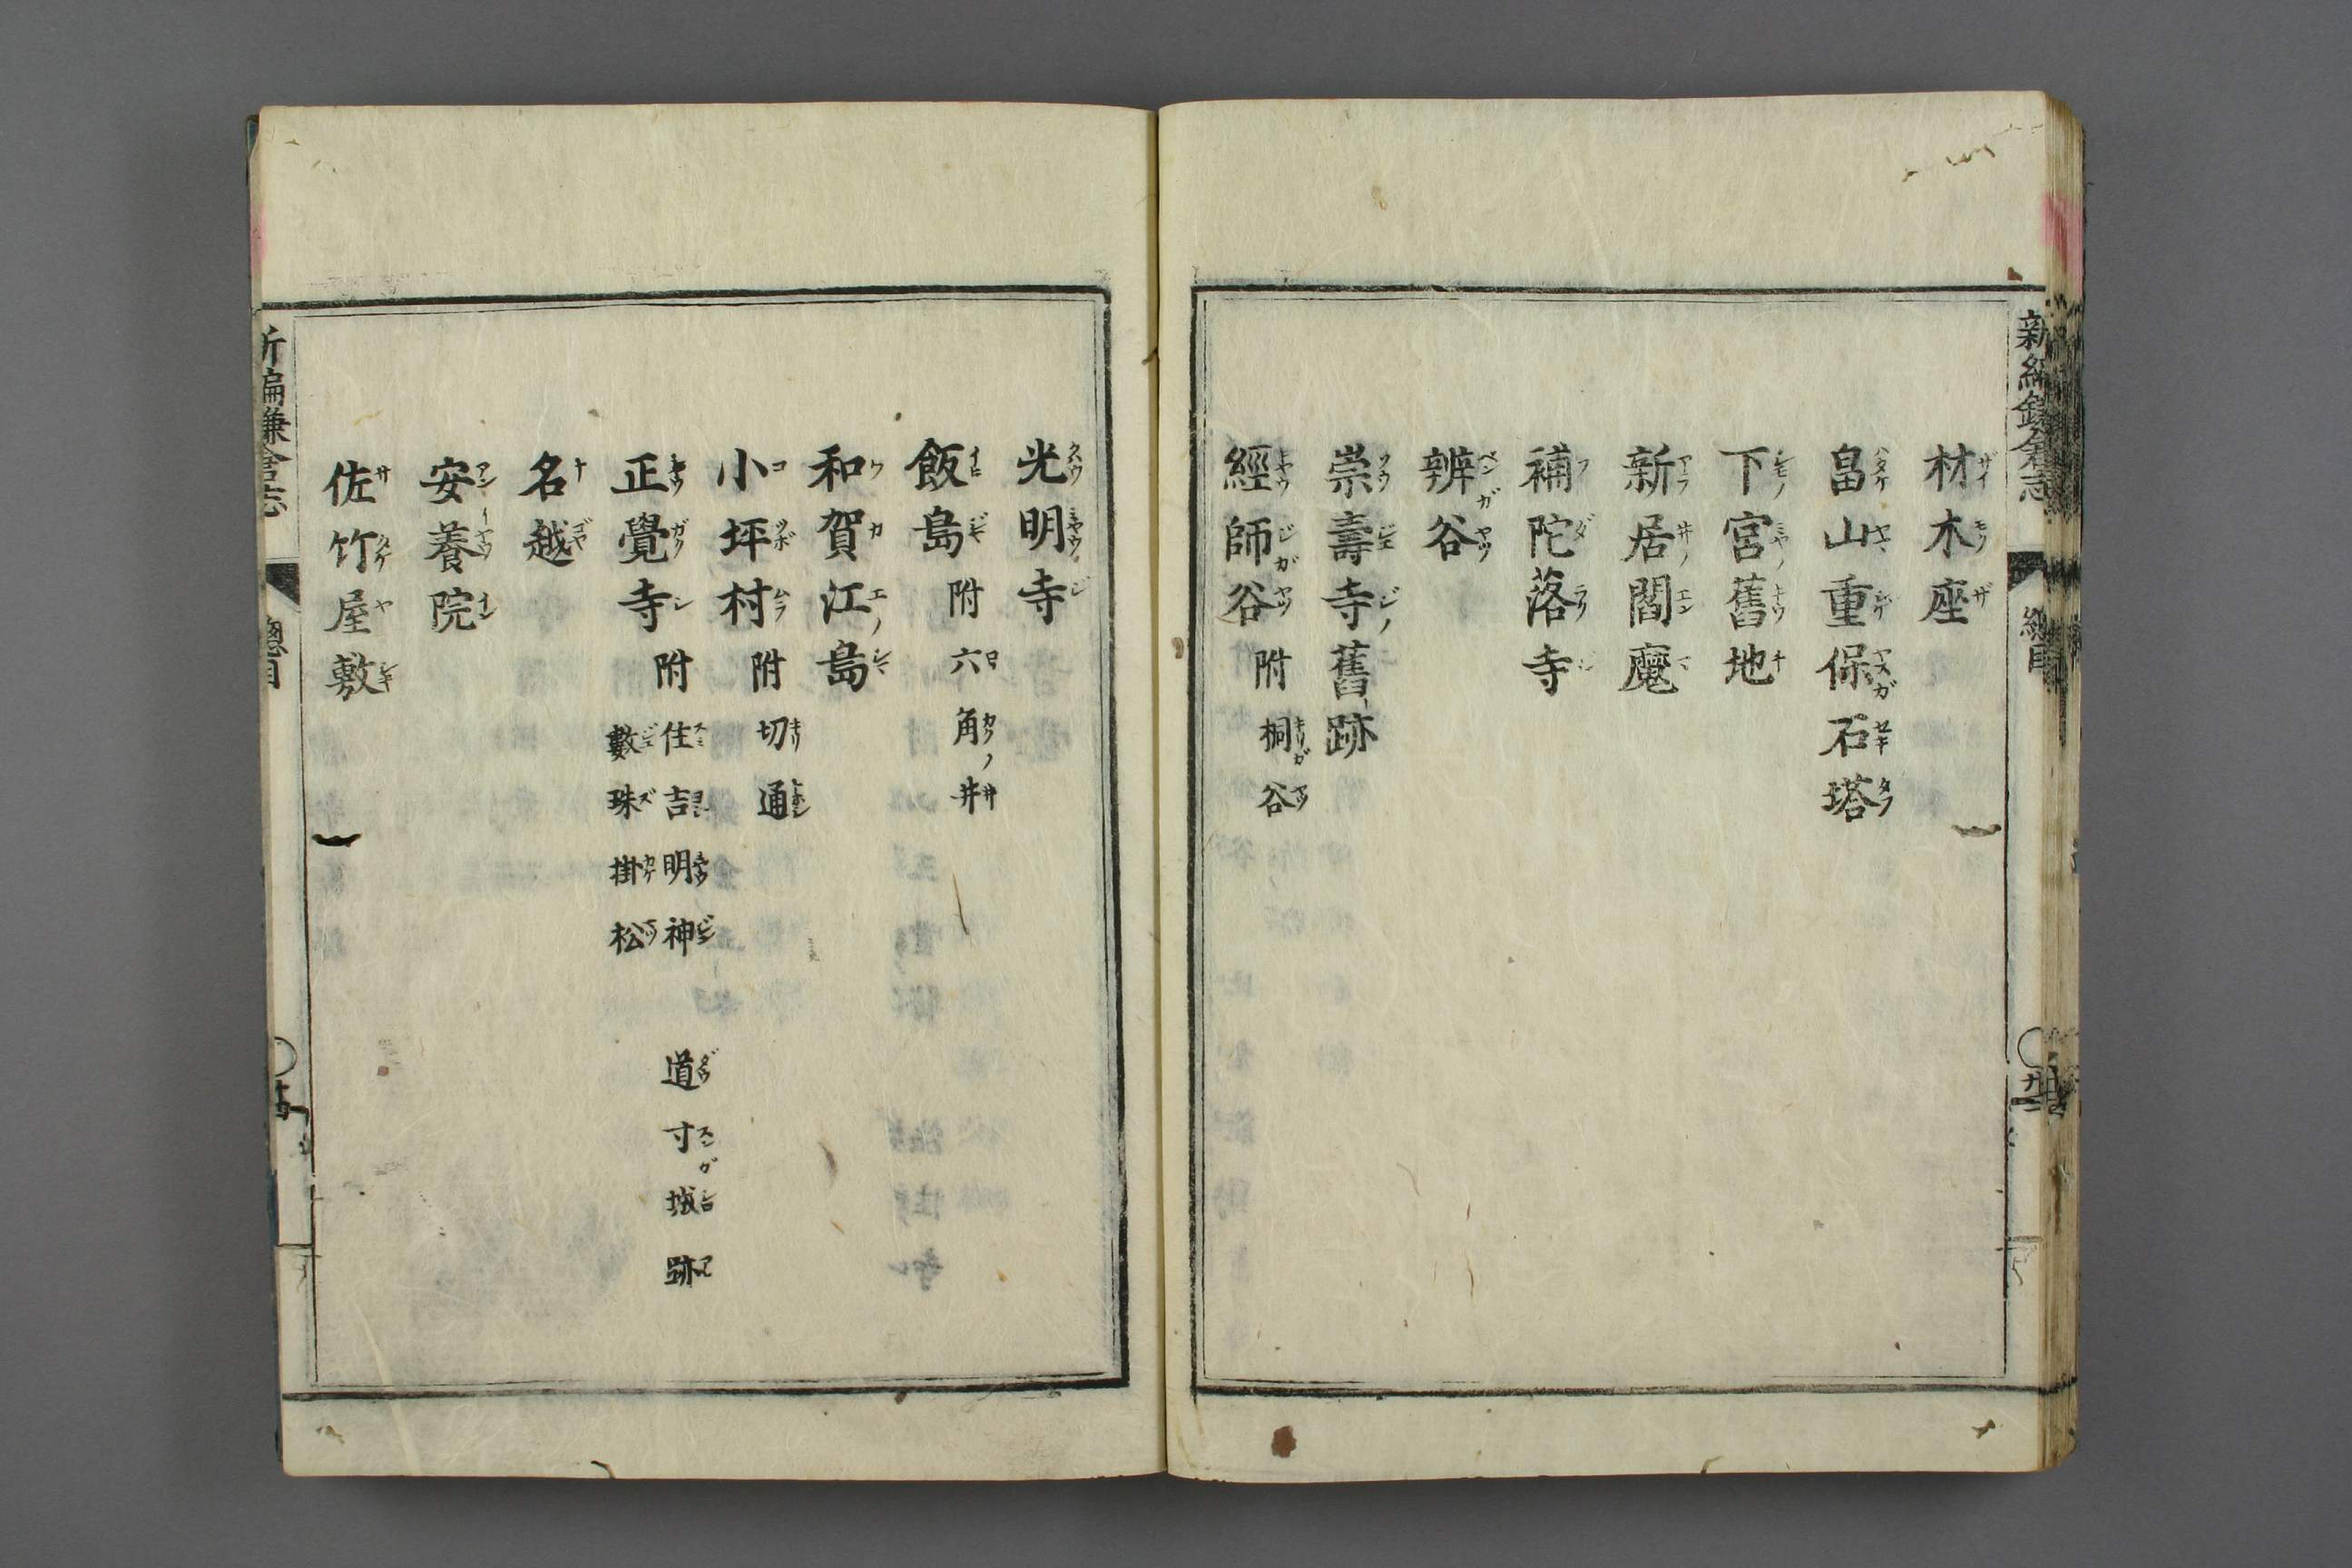 新編鎌倉志
總目
材木座
畠山重保石塔
下宮舊地
新居閻魔
補陀落寺
辨谷
崇壽寺舊跡
經師谷 附 桐谷
光明寺
飯島 附 六角井
和賀江島
小坪村 附 切通
正覺寺 附 住吉明神 道寸城跡
數珠掛松
名越
安養院
佐竹屋敷
新編鎌倉志
總目